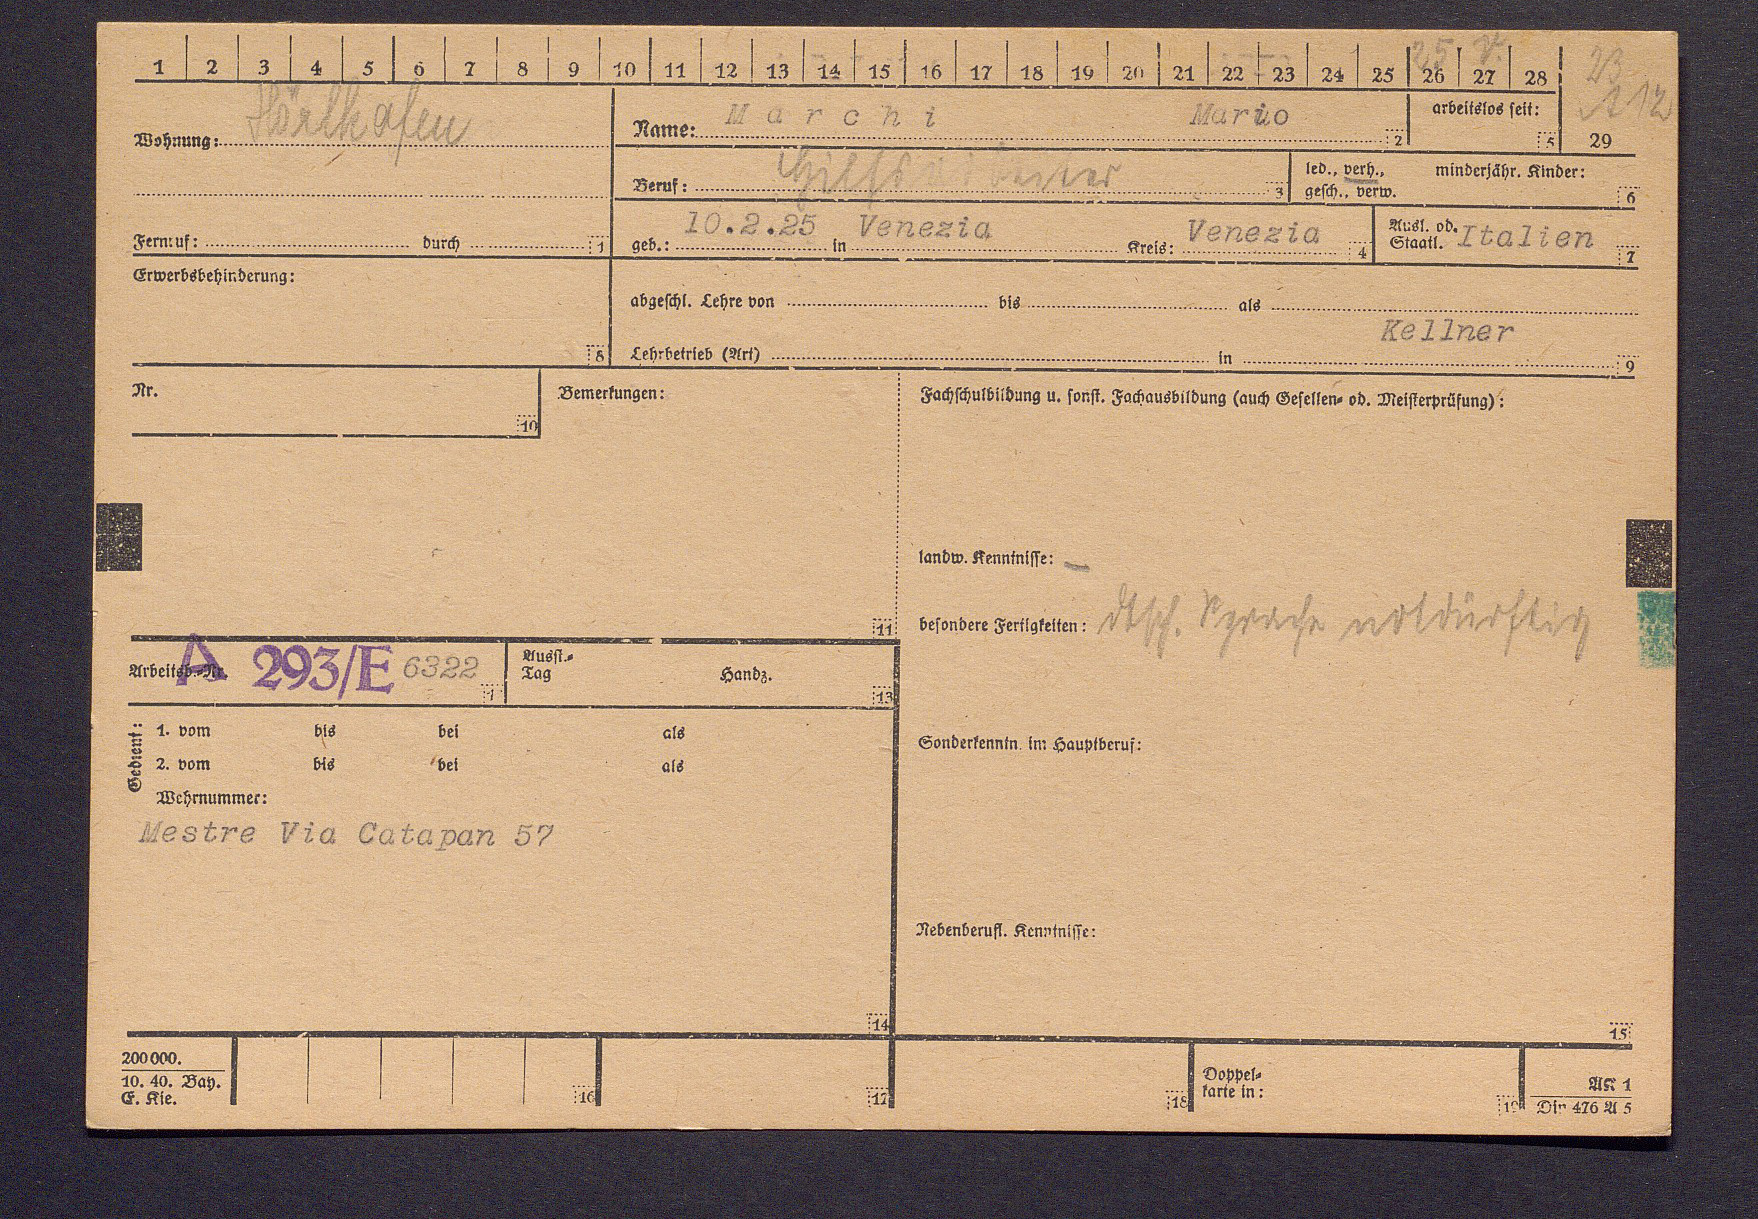 1 2 3 4 5 6 7 8 9 10 11 12 13 14 15 16 17 18 19 20 21 22 23 24 25 26 27 28
25 V. 23
112
Wohnung: Hörlkofen
Name: Marchi Mario 2
arbeitslos seit: 5
29
Beruf: Hilfsarbeiter 3
led., verh., geſch., verw.
minderjähr. Kinder: 6
Fernruf: durch 1
geb.: 10.2.25 in Venezia Kreis: Venezia 4
Ausl. od. Staatl. Italien 7
Erwerbsbehinderung: 8
abgeſchl. Lehre von bis als
Kellner
Lehrbetrieb (Art) in 9
Nr. 10
Bemerkungen: 11
Fachſchulbildung u. ſonſt. Fachausbildung (auch Geſellen- od. Meiſterprüfung):
landw. Kenntniſſe: –
beſondere Fertigkeiten: dtſch. Sprache notdürftig
Arbeitsb.-Nr. A 293/E 6322
Ausſt.-Tag Handz. 13
Gedient:
1. vom bis bei als
2. vom bis bei als
Wehrnummer:
Mestre Via Catapan 57
14
Sonderkenntn. im Hauptberuf:
Nebenberufl. Kenntniſſe:
15
200000.
10. 40. Bay.
E. Kie.
16 17 18
Doppel-
karte in: 19
AK 1
Din 476 A 5